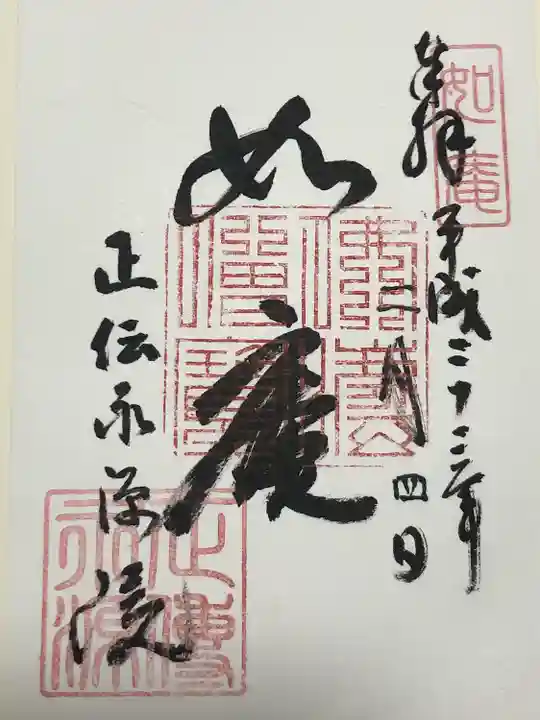 奉拝
平成二十三年
二月四日
如庵
正伝永源院
如庵
正傳永源